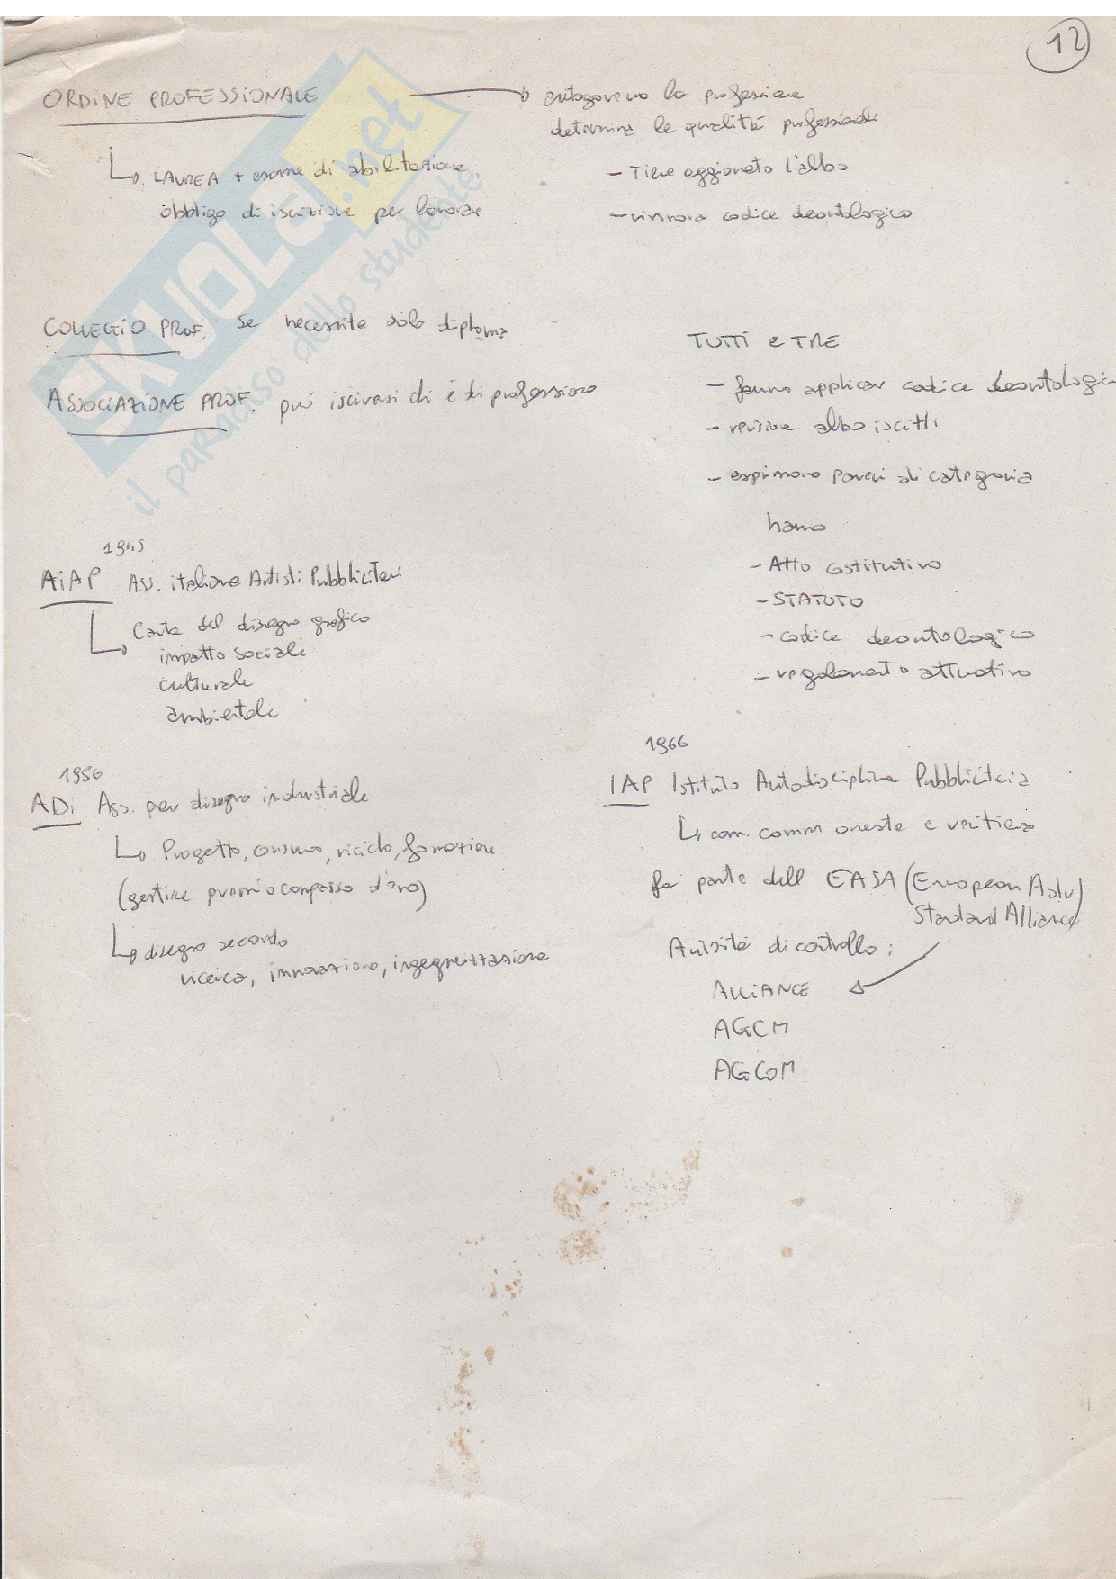 12
ORDINE PROFESSIONALE
autogoverna la professione
determina le qualità professionali
LAUREA + esame di abilitazione
obbligo di iscrizione per lavorare
- Tiene aggiornato l'albo
- rinnova codice deontologico
COLLEGIO PROF. Se necessita solo diploma
ASSOCIAZIONE PROF. può iscriversi chi è di professione
TUTTI e TRE
- fanno applicar codice deontologico
- revisione albo iscitti
- esprimono pareri di categoria
hanno
- Atto costitutivo
- STATUTO
- codice deontologico
- regolamento attuativo
1945
AiAP Ass. italiana Artisti Pubblicitari
Carta del disegno grafico
impatto sociale
culturale
ambientale
1956
ADi Ass. per disegno industriale
Progetto, consumo, riciclo, formazione
(gestire premio compasso d'oro)
disegno secondo
ricerca, innovazione, ingegnerizzazione
1966
IAP Istituto Autodisciplina Pubblicitaria
com. comm oneste e veritiera
fa parte dell EASA (European Adv)
Standard Alliance
Autorità di controllo:
ALLiANCE
AGCM
AGCOM
SKUOLA.net
il paradiso dello studente